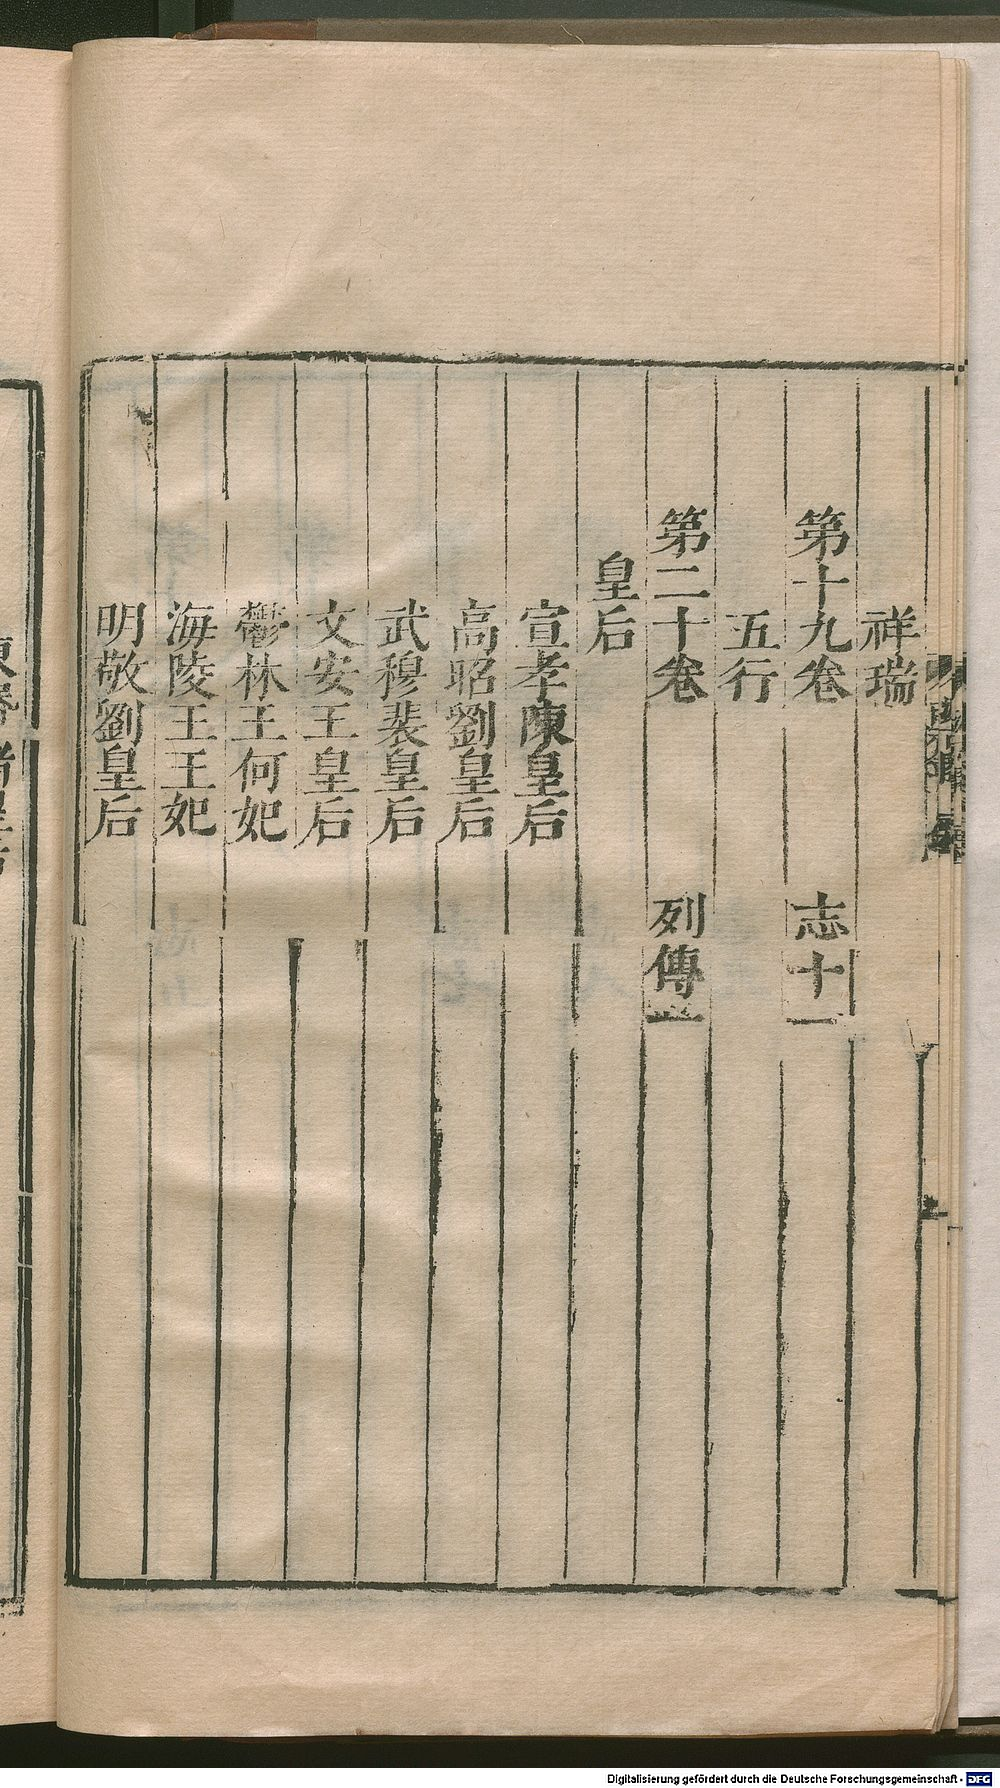 祥瑞
第十九卷 志十一
五行
第二十卷 列傳一
皇后
宣孝陳皇后
高昭劉皇后
武穆裴皇后
文安王皇后
鬱林王何妃
海陵王王妃
明敬劉皇后
Digitalisierung gefördert durch die Deutsche Forschungsgemeinschaft - DFG